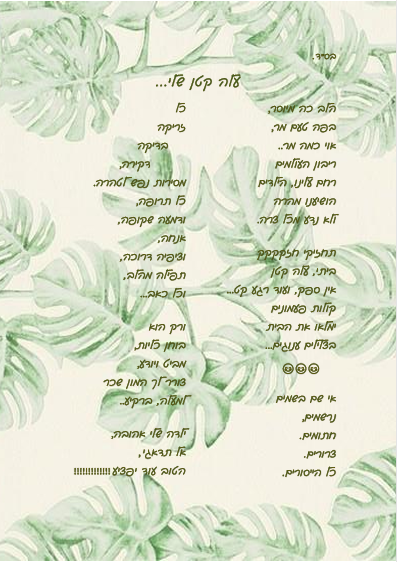 בס״ד.
עלה קטן שלי...
הלב כה מיוסר,
בפה טעם מר,
אוי כמה מר..
ריבון העולמים
רחם עלינו, הילדים
הושיענו מהרה
ולא נדע מכל צרה.
תחזיקי חזקקקק
ביתי, עלה קטן
אין ספק, ועוד רגע קט...
קולות פעמונים
ימלאו את הבית
בצלילים ענוגים...
😊😊😊
אי שם בשמים
נרשמים,
חתומים.
צרורים.
כל הייסורים.
כל
זריקה
בדיקה
דקירה,
מסירות נפש לטהרה.
כל תרופה,
ודמעה שקופה,
אנחה,
וציפיה דרוכה,
תפילה מהלב,
וכל כאב...
ורק הוא
בוחן כליות,
מביט ויודע,
צורר לך המון שכר
למעלה, ברקיע..
ילדה שלי אהובה,
אל תדאגי,
הטוב עוד יפציע!!!!!!!!!!!!!